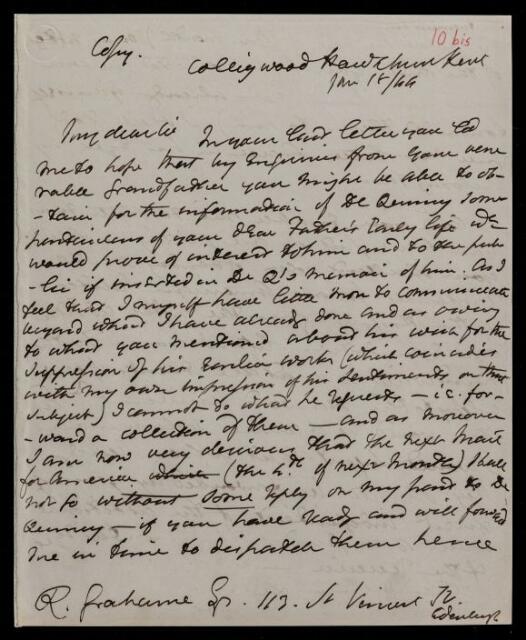 Copy.
10 bis
Collingwood Hawkhurst Kent
Jan 18/66
My dear Sir In your last letter you led
me to hope that by enquiries from your vene
rable Grandfather you might be able to ob-
-tain for the information of De Quincy some
particulars of your dear Father's Early life wch
would prove of interest to him and to the pub-
-lic if inserted in De Q's memoir of him. As I
feel that I myself have little more to communicate
beyond what I have already done and as owing
to what you mentioned about his wish for the
suppression of his Earlier works (which coincides
with my own impression of his sentiments on that
subject) I cannot do what he requests – i.e. for-
-ward a collection of them – and as moreover
I am now very desirous that the next Mail
for America (the 4th of next month) shall
not go without some reply on my part to De
Quincy – if you have ready and will forward
me in time to dispatch them hence
R. Grahame Esq. 113. St Vincent St.
Edenburgh